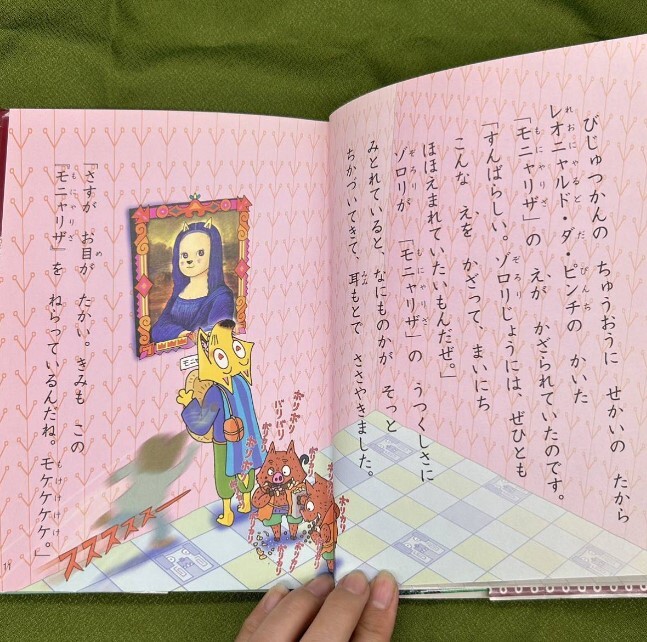 びじゅつかんの ちゅうおうに せかいの たから
レオニャルド・ダ・ピンチの かいた
れおにゃるど だ ぴんち
「モニャリザ」の えが かざられていたのです。
もにゃりざ
「すんばらしい。ゾロリじょうには、ぜひとも
ぞろり
こんな えを かざって、まいにち
ほほえまれていたいもんだぜ。」
ゾロリが 「モニャリザ」の うつくしさに
ぞろり もにゃりざ
みとれていると、なにものかが そっと
ちかづいてきて、耳もとで ささやきました。
みみ
「さすが お目が たかい。きみも この
め
『モニャリザ』を ねらっているんだね。モケケケケ。」
もにゃりざ もけけけけ
モニャ
ボリボリ
バリバリ
ボリボリ
ススススス―